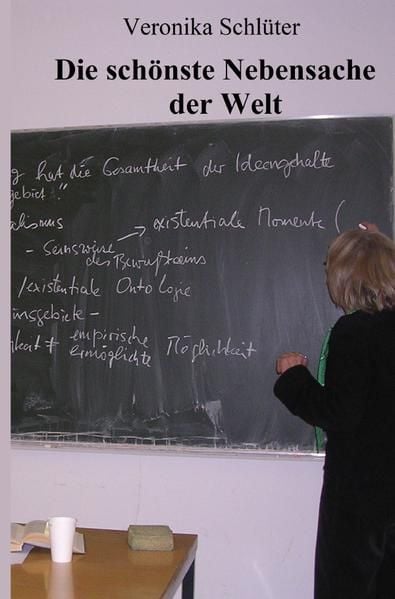 Veronika Schlüter
Die schönste Nebensache
der Welt
g hat die Gesamtheit der Ideengehalte
gebiet."
alismus
existentiale Momente (
- Seinsweise
des Bewußtseins
/existentiale Ontologie
nsgebiete -
empirische
keit ≠ ermöglichte Möglichkeit